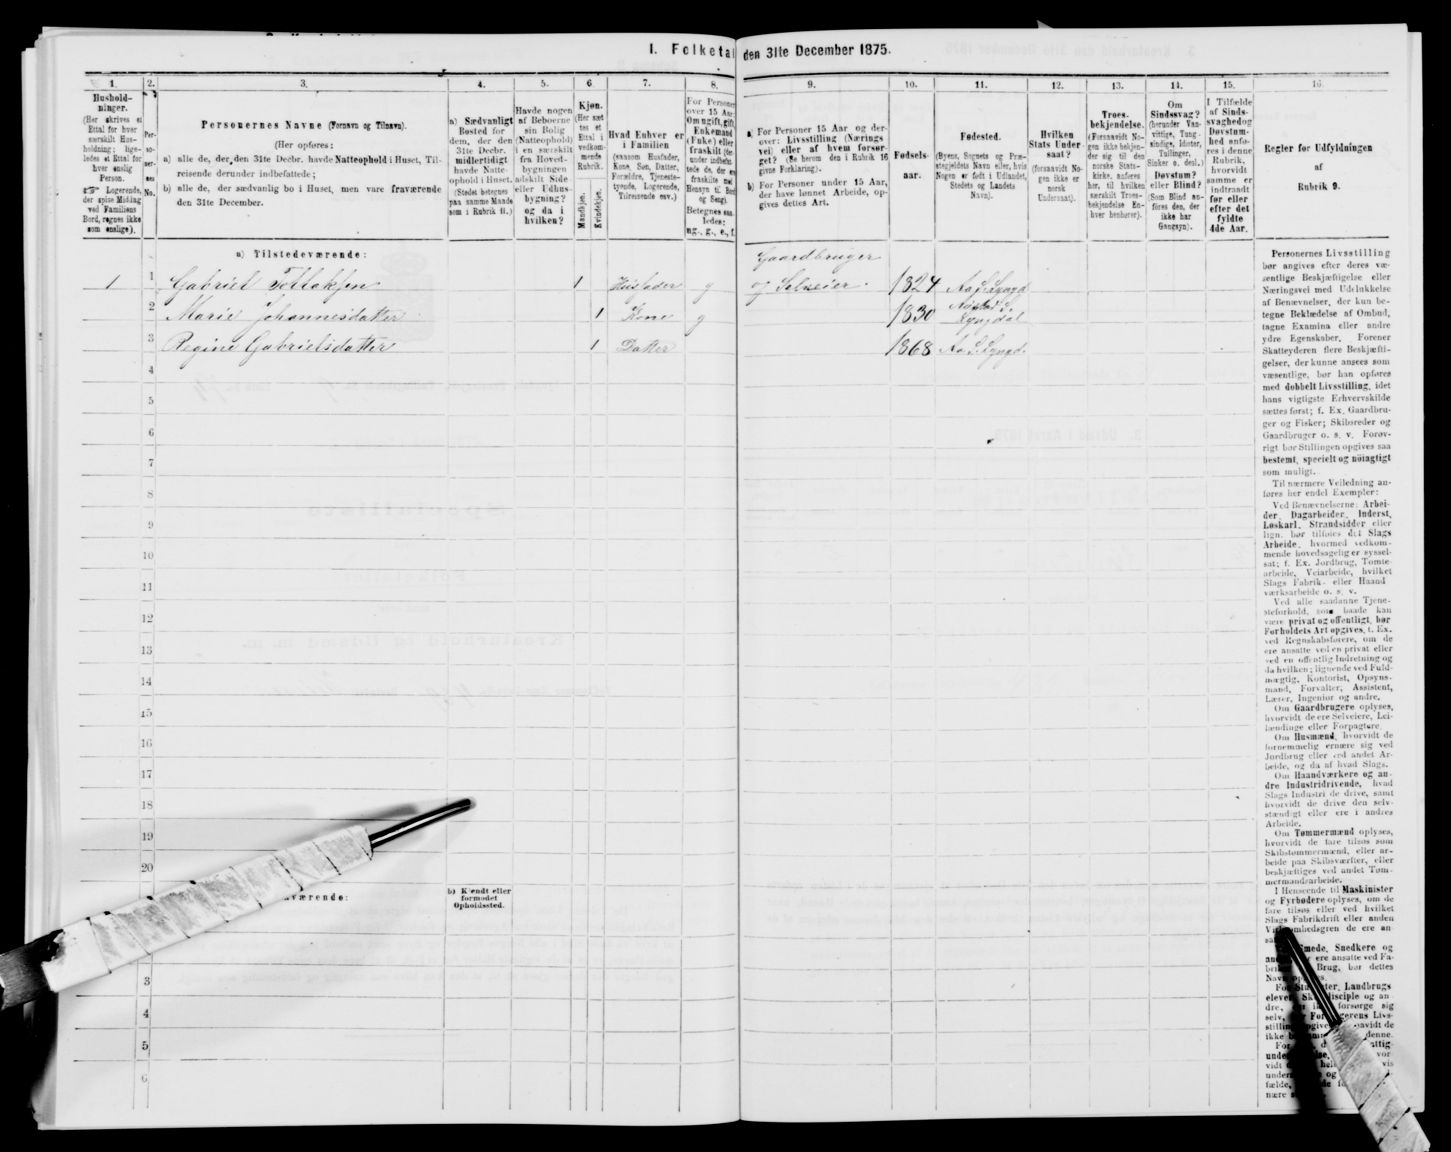 I. Folketal den 31te December 1875.
1.
2.
3.
4.
5.
6.
7.
8.
9.
10.
11.
12.
13.
14.
15.
16.
Hushold-
ninger.
(Her skrives et
Ettal for hver
særskilt Hus-
holdning; lige-
ledes et Ettal for
hver enslig
Person.
Logerende,
der spise Middag
ved Familiens
Bord, regnes ikke
som enslige).
Personernes Navne (Fornavn og Tilnavn).
(Her opføres:
a) alle de, der den 31te Decbr. havde Natteophold i Huset, Til-
reisende derunder indbefattede;
b) alle de, der sædvanlig bo i Huset, men vare fraværende
den 31te December.
a) Sædvanligt
Bosted for
dem, der den
31te Decbr.
midlertidigt
havde Natte-
ophold i Huset.
(Stedet betegnes
paa samme Maade
som i Rubrik 11.)
Havde nogen
af Beboerne
sin Bolig
(Natteophold)
i en særskilt
fra Hoved-
bygningen
adskilt Side-
eller Udhus-
bygning?
og da i
hvilken?
Kjøn.
(Her sæt
tes et
Ettal i
vedkom-
mende
Rubrik.
Mandkjøn.
Kvindekjøn.
Hvad Enhver er
i Familien
(saasom Husfader,
Kone, Søn, Datter,
Forældre, Tjeneste-
tyende, Logerende,
Tilreisende osv.)
For Personer
over 15 Aar:
Om ugift, gift,
Enkemand
(Enke) eller
fraskilt
Betegnes saa-
ledes:
ug., g., e., f.
a) For Personer 15 Aar og der-
over: Livsstilling (Nærings
vei) eller af hvem forsør-
get? (Se herom den i Rubrik 16
givne Forklaring).
b) For Personer under 15 Aar,
der have lønnet Arbeide, op-
gives dettes Art.
Fødsels-
aar.
Fødested.
(Byens, Sognets og Præ-
stegjeldets Navn eller, hvis
Nogen er født i Udlandet,
Stedets og Landets
Navn).
Hvilken
Stats Under-
saat?
(forsaavidt No-
gen ikke er
norsk
Undersaat).
Troes-
bekjendelse.
(Forsaavidt No-
gen ikke bekjen-
der sig til den
norske Stats-
kirke, anføres
her, til hvilken
særskilt Troes-
bekjendelse En-
hver henhører).
Om
Sindssvag?
(herunder Van-
vittige, Tung-
sindige, Idioter,
Tullinger,
Sinker o. desl.)
Døvstum?
eller Blind?
(Som Blind an-
føres den, der
ikke har
Gangsyn).
I Tilfælde
af Sinds-
svaghed og
Døvstum-
hed anfø-
res i denne
Rubrik,
hvorvidt
samme er
indtraadt
før eller
efter det
fyldte
4de Aar.
Regler for Udfyldningen
af
Rubrik 9.
a) Tilstedeværende:
Gaardbruger
1 1 Gabriel 1 Husfader g og Selveier. 1824
2 Marie Johannesdatter 1 Kone g 1830 Lyngdal
3 Regine Gabrielsdatter 1 Datter 1868
4
5
6
7
8
9
10
11
12
13
14
15
16
17
18
19
20
værende:
b) Kjendt eller
formodet
Opholdssted.
3
4
5
6
Personernes Livsstilling
bør angives efter deres væ-
sentlige Beskjæftigelse eller
Næringsvei med Udelukkelse
af Benævnelser, der kun be-
tegne Beklædelse af Ombud,
tagne Examina eller andre
ydre Egenskaber. Forener
Skatteyderen flere Beskjæfti-
gelser, der kunne ansees som
væsentlige, bør han opføres
med dobbelt Livsstilling, idet
hans vigtigste Erhvervskilde
sættes først; f. Ex. Gaardbru-
ger og Fisker; Skibsreder og
Gaardbruger o. s. v. Forøv-
rigt bør Stillingen opgives saa
bestemt, specielt og nøiagtigt
som muligt.
Til nærmere Veiledning an-
føres her endel Exempler:
Ved Benævnelserne: Arbei-
der, Dagarbeider, Inderst,
Løskarl, Strandsidder eller
lign. bør tilføies det Slags
Arbeide, hvormed vedkom-
mende hovedsagelig er syssel-
sat; f. Ex. Jordbrug, Tomte-
arbeide, Veiarbeide, hvilket
Slags Fabrik- eller Haand
værksarbeide o. s. v.
Ved alle saadanne Tjene-
steforhold, som baade kan
være privat og offentligt, bør
Forholdets Art opgives, f. Ex.
ved Regnskabsførere, om de
ere ansatte ved en privat eller
ved en offentlig Indretning og
da hvilken; lignende ved Fuld-
mægtig, Kontorist, Opsyns-
mand, Forvalter, Assistent,
Lærer, Ingeniør og andre.
Om Gaardbrugere oplyses,
hvorvidt de ere Selveiere, Lei-
lændinge eller Forpagtere.
Om Husmænd, hvorvidt de
fornemmelig ernære sig ved
Jordbrug eller ved andet Ar-
beide, og da af hvad Slags.
Om Haandværkere og an-
dre Industridrivende, hvad
Slags Industri de drive, samt
hvorvidt de drive den selv-
stændigt eller ere i andres
Arbeide.
Om Tømmermænd oplyses,
hvorvidt de fare tilsøs som
Skibstømmermænd, eller ar-
beide paa Skibsværfter, eller
beskjæftiges ved andet Tøm-
mermandsarbeide.
I Henseende til Maskinister
og Fyrbødere oplyses, om de
fare tilsøs eller ved hvilket
Slags Fabrikdrift eller anden